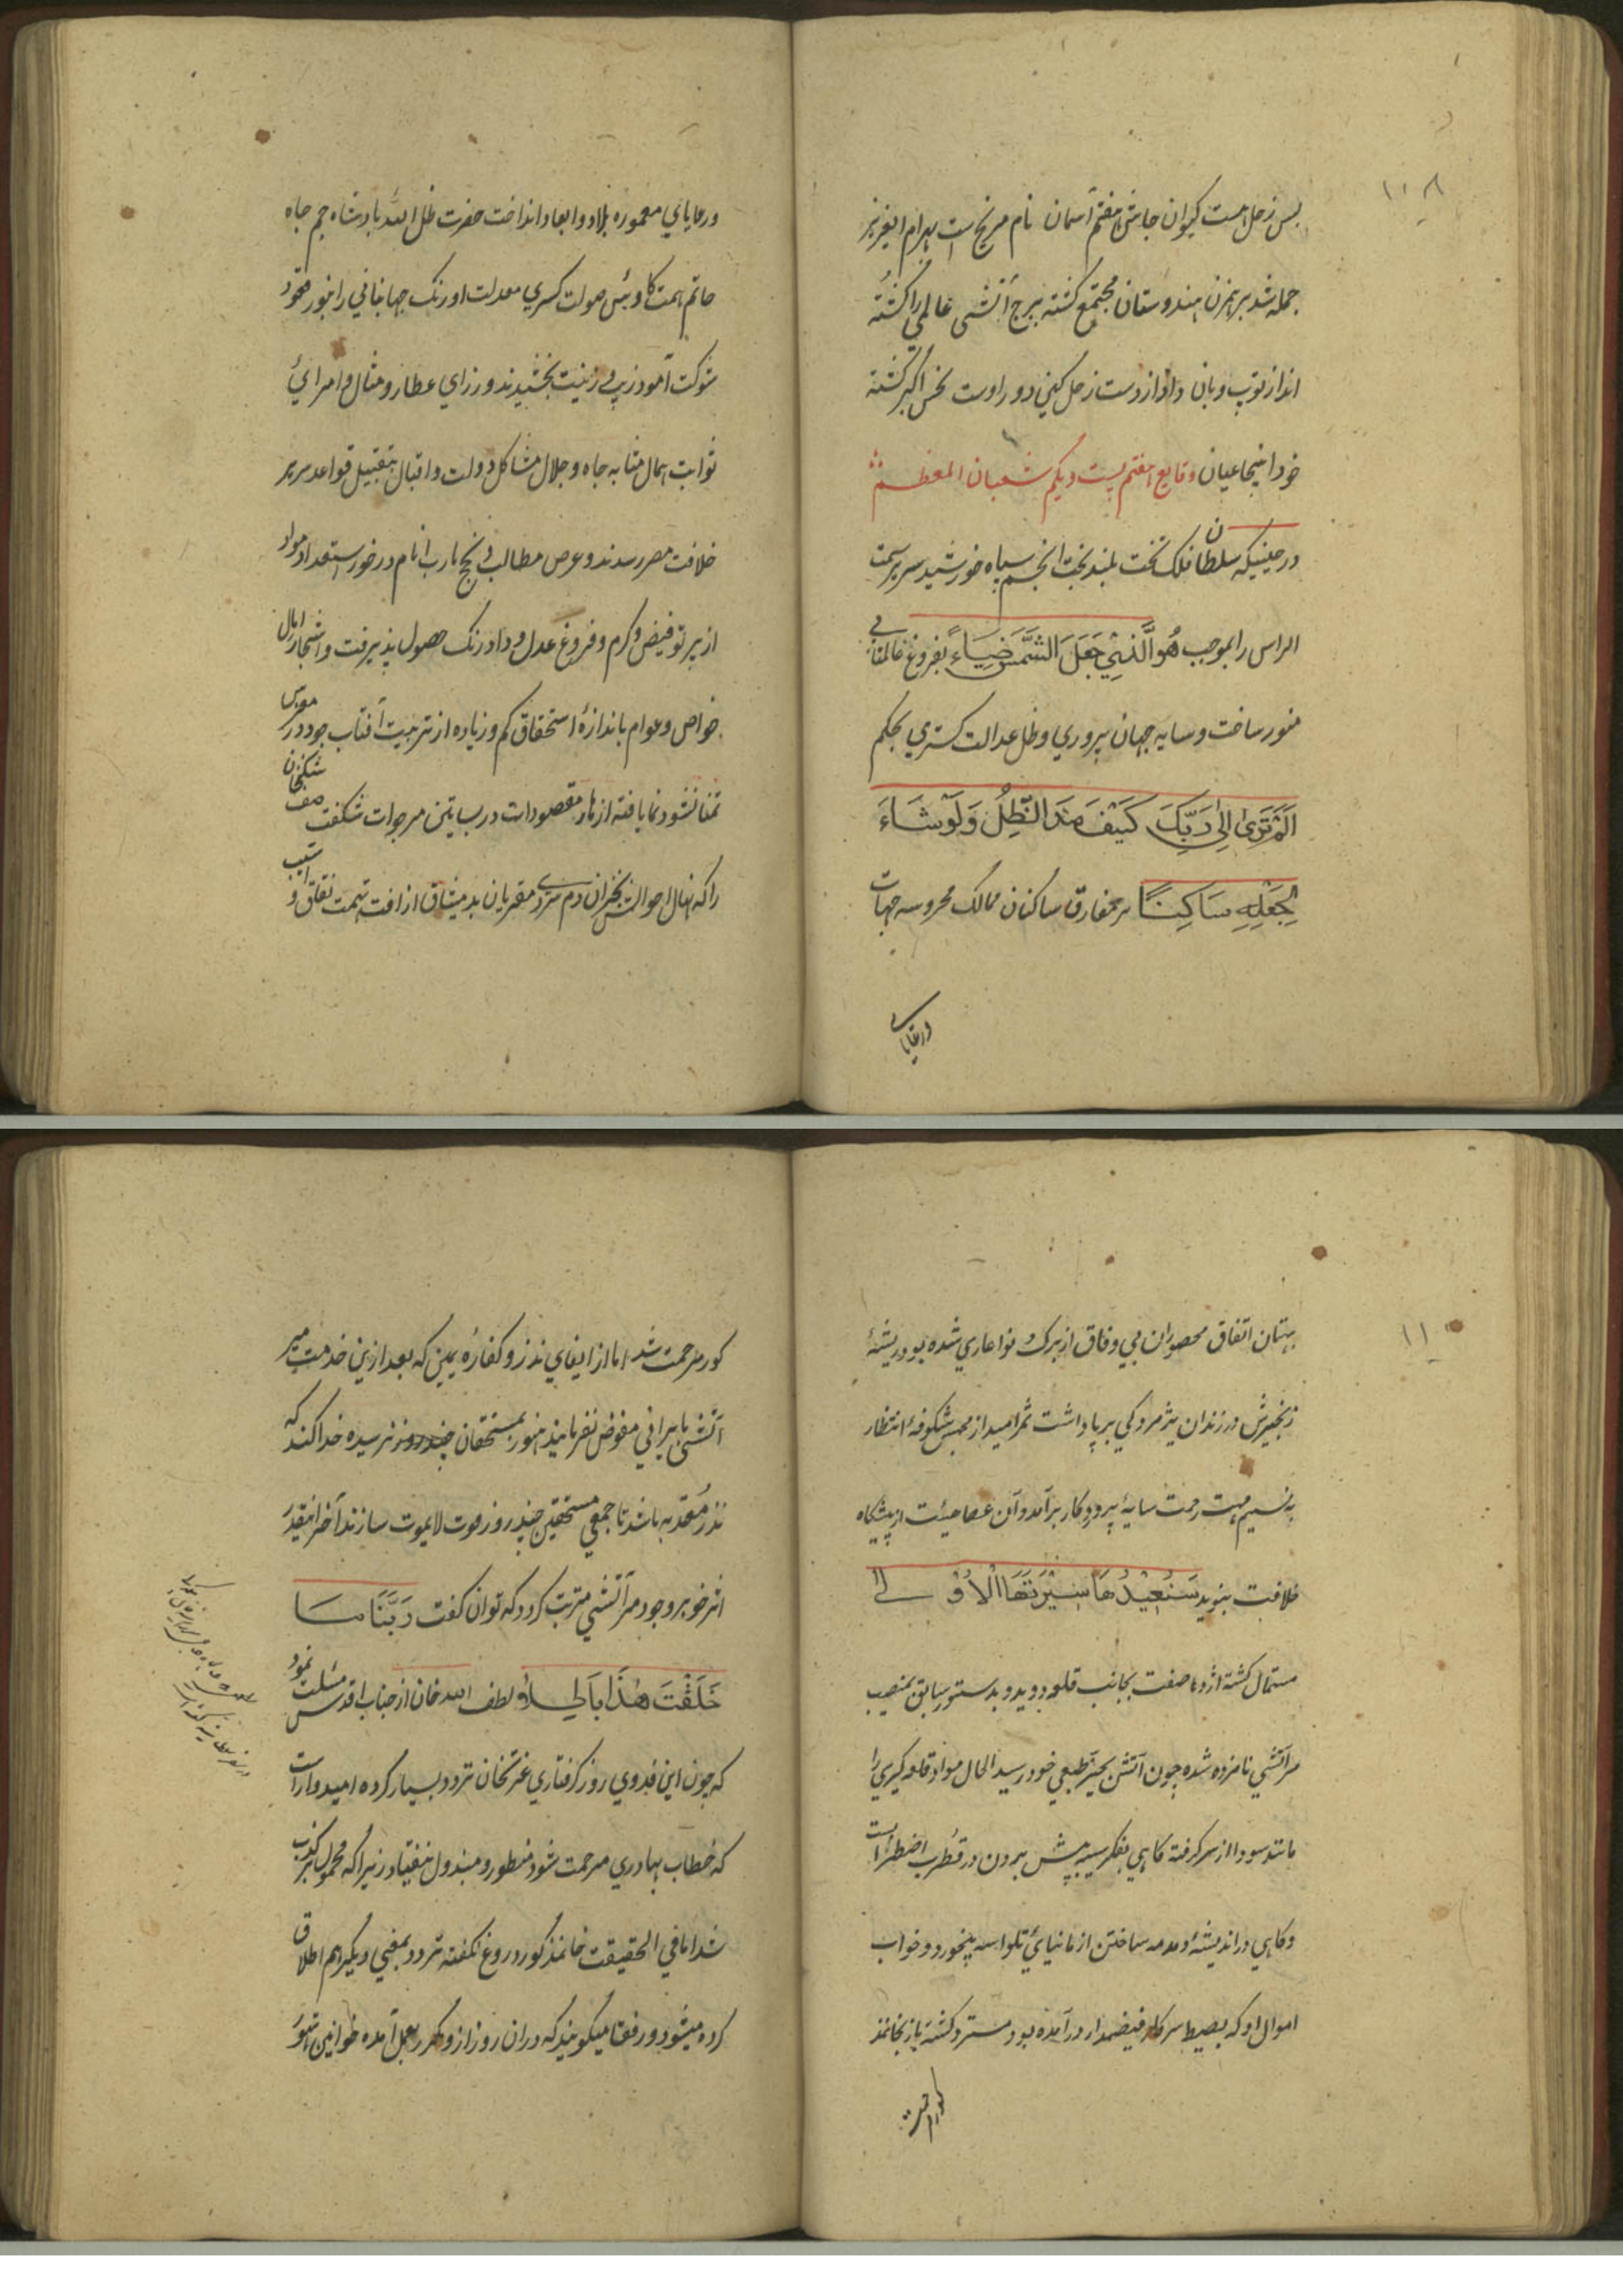 ۱۰۸
پس زحل هست کیوان جاش هفتم آسمان نام مریخ است بهرام ایعزیز
جمله شد بر بهزن هندوستان مجتمع کشته ببرج آتشی عالمی را کشته
انداز توپ و بان واو از دست زحل کینی دو راوست نحس اکبر کشته
خود اینجا عیان وقایع هفتم بیست و یکم شعبان المعظم
در حینیکه سلطان فلک تخت بلند بخت انجم سپاه خورشید سریر سمت
الراس را بموجب هُوَ الَّذِي جَعَلَ الشَّمْسَ ضِيَاءً بفروغ عالمتابی
منور ساخت و سایه جهان پروری و ظل عدالت کستری بحکم
اَلَمْ تَرَى اِلَى رَبِّكَ كَيْفَ مَدَّ الظِّلَّ وَلَوْ شَاءَ
لَجَعَلَهُ سَاكِنًا بر مفارق ساکنان ممالک محروسه جهات
ورعایای
ورعایای معموره بلاد و ابعاد انداخت حضرت ظل الله بادشاه جم جاه
حاتم همت کاوس صولت کسری معدلت اورنک جهانبانی را بنور قعود
شوکت آمود زیب و زینت بخشیدند وزرای عطارد مثال و امرای
ثوابت همال مثابه جاه و جلال مشاکل دولت و اقبال بتقبیل قواعد سریر
خلافت مصیر رسیدند و عرض مطالب و انجح مارب انام در خور استعداد مواد
از پرتو فیض و کرم و فروغ عدل و داد رنک حصول پذیرفت و اشجار آمال
خواص و عوام باندازهٔ استحقاق کم و زیاده از تربیت آفتاب جود در معرض
تمنا نشو و نما یافته ازهار مقصودات در بساتین مرجوات شکفت صف شکنخان
را که نهال احوالش بخزان دم سردی مقربان بد میثاق از افت تهمت نفاق و آسیب
۱۱
بهتان اتفاق محصوران بی وفاق از برک و نوا عاری شده بود ریشهٔ
زنجیرش در زندان پژمردکی بر پا داشت ثمر امید از محبس شکوفهٔ انتظار
به نسیم هبت رحمت سایهٔ پروردکار برآمد و آن عصا هیئت از پیشکاه
خلافت بنوید سَنُعِيدُهَا سِيْرَتَهَا الْاُوْلٰى
مستمال کشته اژدها صفت بجانب قلعه دوید و بدستور سابق بمنصب
میر آتشی نامزد شده چون آتش بحیز طبیعی خود رسید الحال مواد قلعه کیری را
مانند سودا از سر کرفته کاهی بفکر سیبه پیش بردن در قطرب اضطراب است
و کاهی در اندیشهٔ دمدمه ساختن از مانیای تلواسه پیخورد و خواب
اموال او که بضبط سرکار فیضمدار درآمده بود مسترد کشته باز بخانمذ
کور مرحمت
کور مرحمت شد اما از ایفای نذر و کفارهٔ یمین که بعد ازین خدمت میر
آتشی بایرانی مفوض نفرمایند هنوز بمستحقان چند روز نرسیده خدا کند که
نذر معتد به باشد تا جمعی مستحقین چند روز قوت لایموت سازند آخر اینقدر
اثر خود بر وجود میر آتشی مترتب کردد که توان کفت رَبَّنَا مَا
خَلَقْتَ هٰذَا بَاطِلًا و لطف الله خان از جناب اقدس مسئلت نمود
که چون این فدوی روز کرفتاری عزتخان تردد بسیار کرده امیدوار است
که خطاب بهادری مرحمت شود منظور و مبذول نیفتاد زیرا که محمول بر کذب
شد اما فی الحقیقت خانمذکور دروغ نکفته تردد بمعنی دیکر هم اطلاق
کرده میشود و رفقا میکویند که در ان روز از و مکرر بعمل آمده خوانین تهور